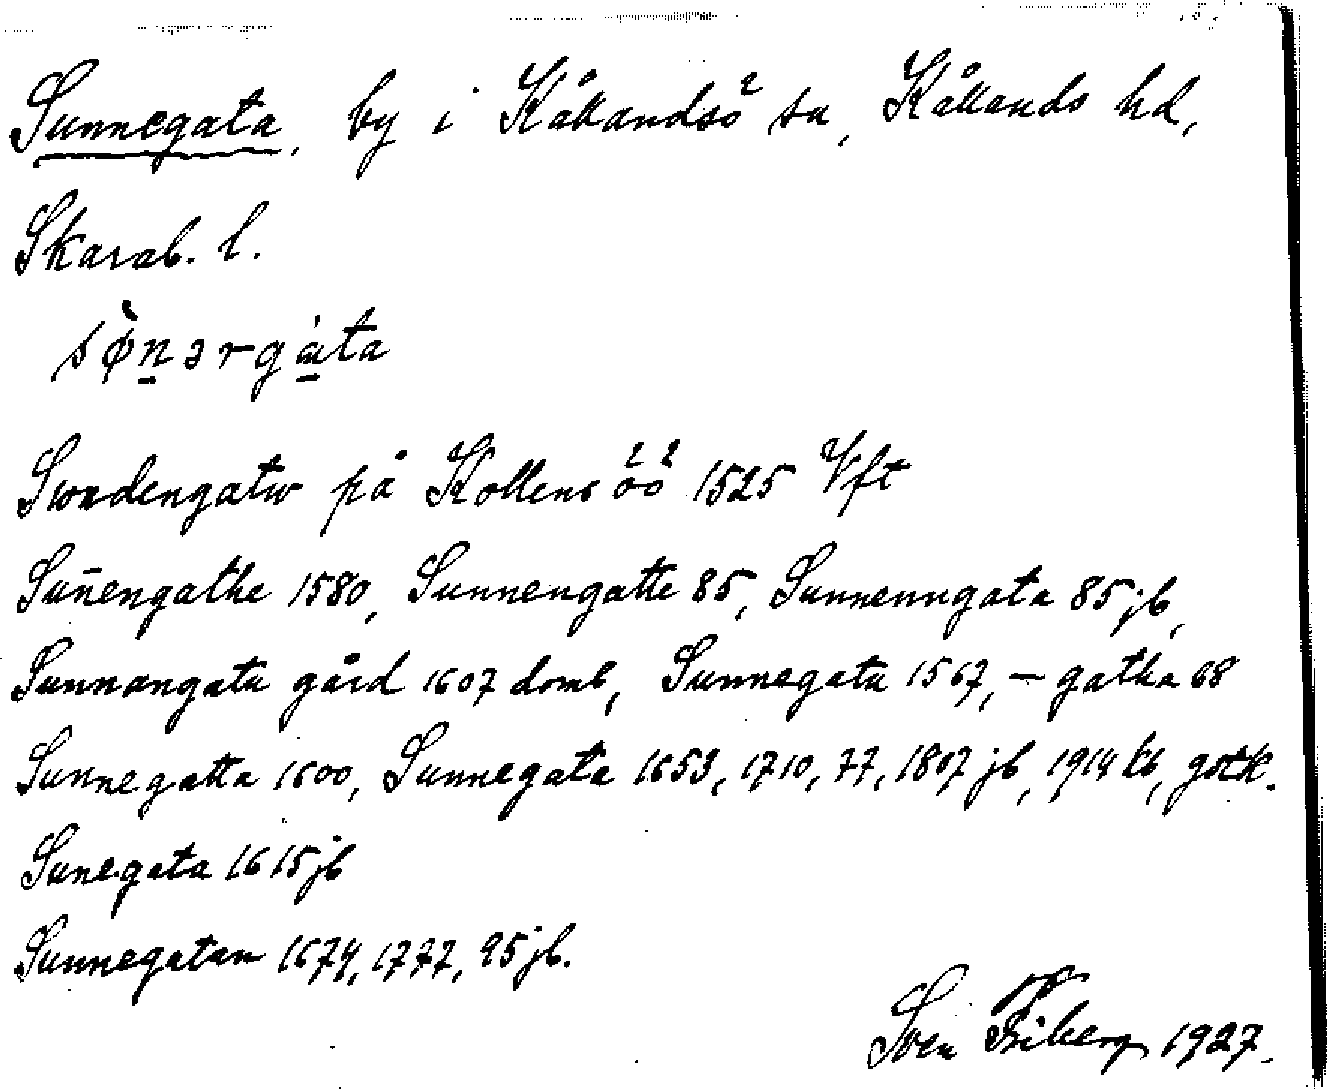 Sunnegata, by i Kållandsö sn, Kållands hd,
Skarab. l.
sø̀nərgáta
Swndengatw på Kollensöö 1525 Vft
Sun̄engathe 1580, Sunnengatte 85, Sunnenngata 85 jb,
Sunnangata gård 1607 domb, Sunnegata 1567, – gatha 68
Sunnegatta 1600, Sunnegata 1653, 1710, 77, 1807 jb, 1914 kb, gstk.
Sunegata 1615 jb
Sunnegatan 1674, 1777, 95 jb.
Sven Friberg 1927.